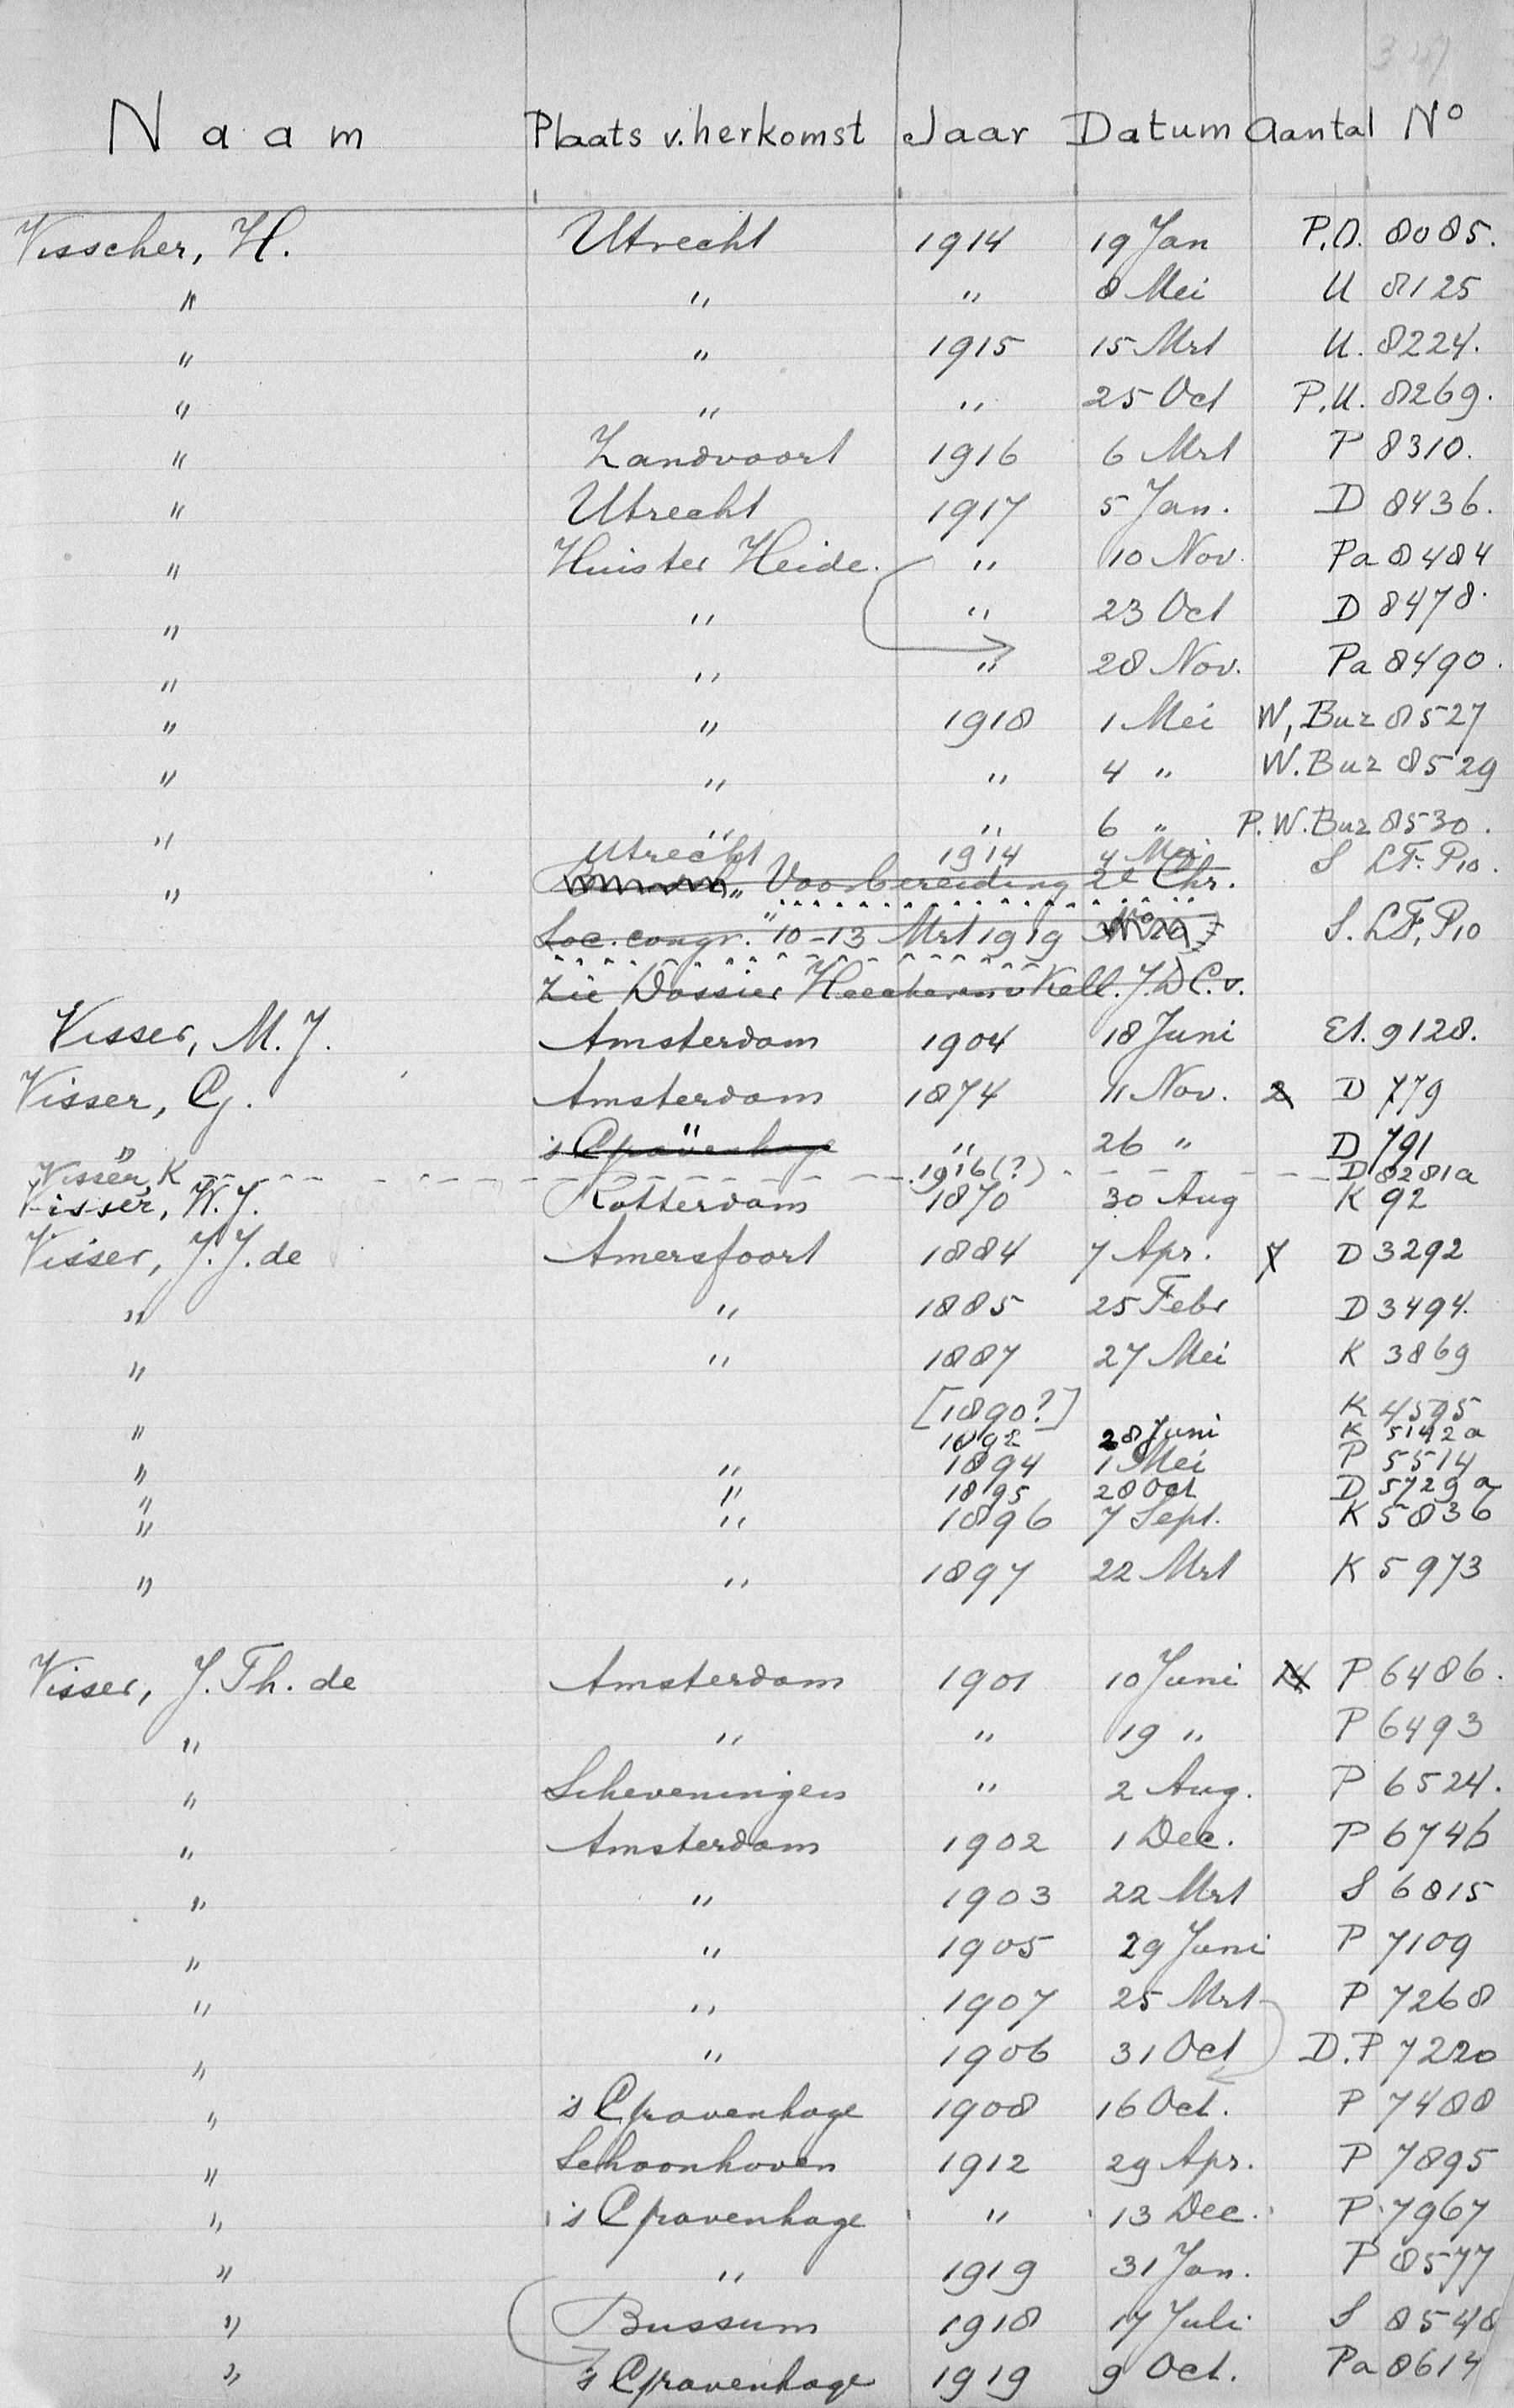 Naam Plaats v. herkomst Jaar Datum Aantal No
Visscher, H. Utrecht 1914 19 Jan P.D. 8085.
" " " 8 Mei U 8125
" " 1915 15 Mrt U. 8224.
" " " 25 Oct P.U. 8269.
" Zandvoort 1916 6 Mrt P 8310.
" Utrecht 1917 5 Jan. D 8436.
" Huis ter Heide. " 10 Nov. Pa 8484
" " " 23 Oct D 8478.
" " " 28 Nov. Pa 8490.
" " 1918 1 Mei W, Bur 8527
" " " 4 " W. Bur 8529
" " " 6 " P. W. Bur 8530.
Utrecht 1914 4 Mei S LF. P10.
" " Voorbereiding 2e Chr.
Soc. congr. " 10-13 Mrt 1919 S. LF, P10
Zie Dossier Heeckeren v Kell. J.D C.v.
Visser, M.J. Amsterdam 1904 18 Juni Et. 9128.
Visser, Cj. Amsterdam 1874 11 Nov. 2 D 779
" 's Gravenhage " " 26 " D 791
Visser, K 1916(?) D 8281a
Visser, W.J. Rotterdam 1870 30 Aug K 92
Visser, J.J. de Amersfoort 1884 7 Apr. 7 D 3292
" " 1885 25 Febr D 3494.
" " 1887 27 Mei K 3869
[1890?] K 4595
" 1892 28 Juni K 5142a
" " 1894 1 Mei P 5514
" " 1895 28 Oct D 5729a
" " 1896 7 Sept. K 5836
" " 1897 22 Mrt K 5973
Visser, J. Th. de Amsterdam 1901 10 Juni 14 P 6486.
" " " 19 " P 6493
" Scheveningen " 2 Aug. P 6524.
" Amsterdam 1902 1 Dec. P 6746
" " 1903 22 Mrt S 6815
" " 1905 29 Juni P 7109
" " 1907 25 Mrt P 7268
" " 1906 31 Oct D.P 7220
" 's Gravenhage 1908 16 Oct. P 7488
" Schoonhoven 1912 29 Apr. P 7895
" 's Gravenhage " 13 Dec. P 7967
" " 1919 31 Jan. P 8577
" Bussum 1918 17 Juli S 8548
" 's Gravenhage 1919 9 Oct. Pa 8614